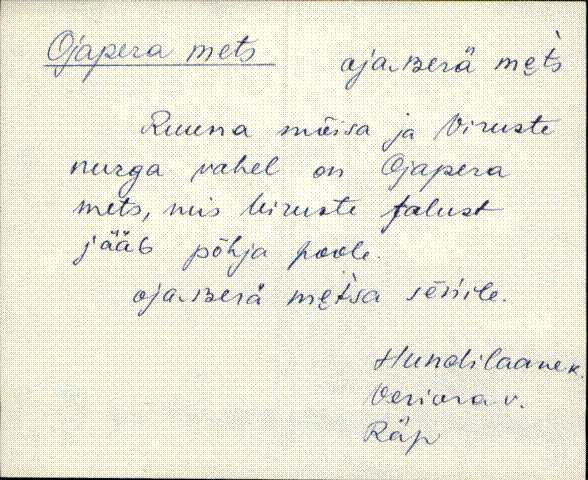 Ojapera mets ojaʙerä męt̀s
Ruuna mõisa ja Viruste
nurga vahel on Ojapera
mets, mis Viruste talust
jääb põhja poole.
ojaʙerä męt̀sa
Hundilaane k.
Veriora v.
Räp